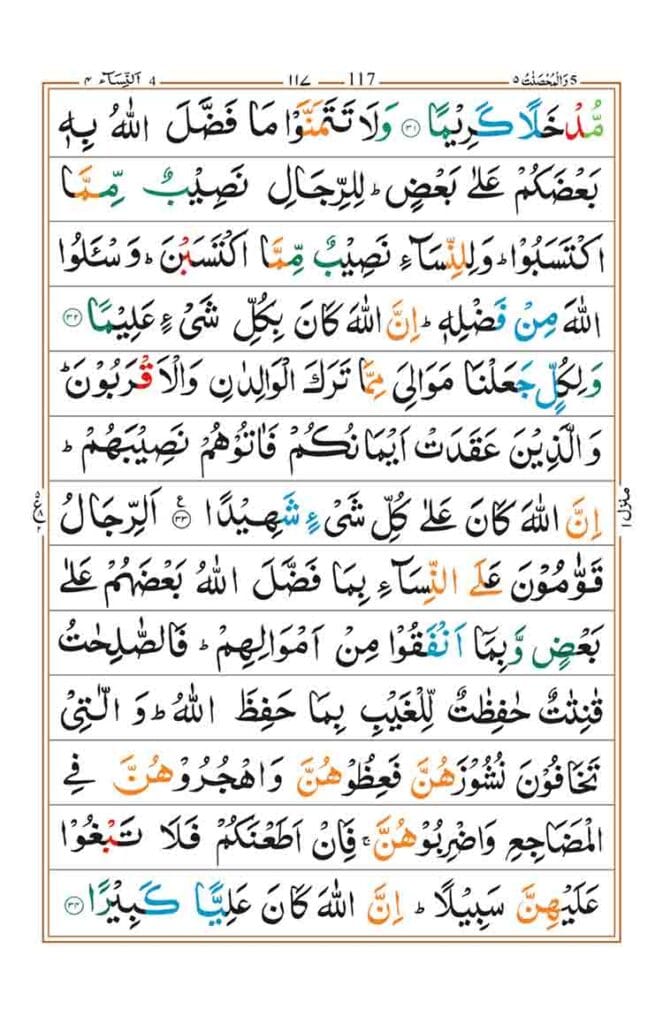 اَلنِّسَآء ٤ 4 ١١٧ 117 وَالْمُحْصَنٰتُ ٥ 5
مُّدْخَلًا كَرِيْمًا ۝٣١ وَلَا تَتَمَنَّوْا مَا فَضَّلَ اللّٰهُ بِهٖ
بَعْضَكُمْ عَلٰى بَعْضٍ ؕ لِلرِّجَالِ نَصِيْبٌ مِّمَّا
اكْتَسَبُوْا ؕ وَلِلنِّسَآءِ نَصِيْبٌ مِّمَّا اكْتَسَبْنَ ؕ وَسْـَٔلُوا
اللّٰهَ مِنْ فَضْلِهٖ ؕ اِنَّ اللّٰهَ كَانَ بِكُلِّ شَىْءٍ عَلِيْمًا ۝٣٢
وَلِكُلٍّ جَعَلْنَا مَوَالِىَ مِمَّا تَرَكَ الْوَالِدٰنِ وَالْاَقْرَبُوْنَ ؕ
وَالَّذِيْنَ عَقَدَتْ اَيْمَانُكُمْ فَاٰتُوْهُمْ نَصِيْبَهُمْ ؕ
اِنَّ اللّٰهَ كَانَ عَلٰى كُلِّ شَىْءٍ شَهِيْدًا ۝٣٣ ع اَلرِّجَالُ
قَوّٰمُوْنَ عَلَى النِّسَآءِ بِمَا فَضَّلَ اللّٰهُ بَعْضَهُمْ عَلٰى
بَعْضٍ وَّبِمَاۤ اَنْفَقُوْا مِنْ اَمْوَالِهِمْ ؕ فَالصّٰلِحٰتُ
قٰنِتٰتٌ حٰفِظٰتٌ لِّلْغَيْبِ بِمَا حَفِظَ اللّٰهُ ؕ وَالّٰتِىْ
تَخَافُوْنَ نُشُوْزَهُنَّ فَعِظُوْهُنَّ وَاهْجُرُوْهُنَّ فِى
الْمَضَاجِعِ وَاضْرِبُوْهُنَّ ۚ فَاِنْ اَطَعْنَكُمْ فَلَا تَبْغُوْا
عَلَيْهِنَّ سَبِيْلًا ؕ اِنَّ اللّٰهَ كَانَ عَلِيًّا كَبِيْرًا ۝٣٤
منزل ١